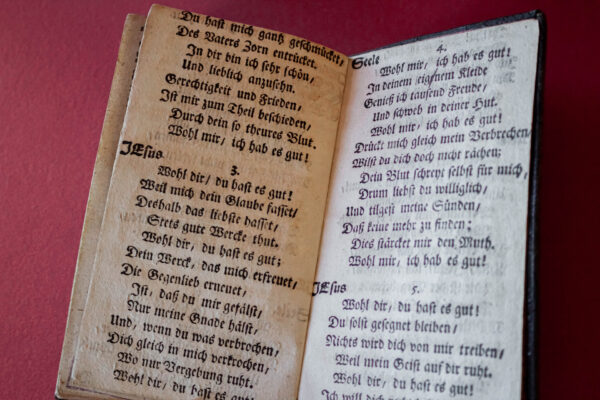 Du hast mich gantz geschmücket,
Des Vaters Zorn entrücket.
In dir bin ich sehr schön,
Und lieblich anzusehn.
Gerechtigkeit und Frieden,
Ist mir zum Theil beschieden,
Durch dein so theures Blut.
Wohl mir, ich hab es gut!
JEsus
3.
Wohl dir, du hast es gut!
Weil mich dein Glaube fasset,
Deshalb das liebste hasset,
Stets gute Wercke thut.
Wohl dir, du hast es gut;
Dein Werck, das mich erfreuet,
Die Gegenlieb erneuet,
Ist, daß du mir gefälst,
Nur meine Gnade hälst,
Und, wenn du was verbrochen,
Dich gleich in mich verkrochen,
Wo nur Vergebung ruht.
Wohl dir, du hast es gut!
Seele
4.
Wohl mir, ich hab es gut!
In deinem eignem Kleide
Genieß ich tausend Freude,
Und schweb in deiner Hut.
Wohl mir, ich hab es gut!
Drückt mich gleich mein Verbrechen,
Wilst du dich doch nicht rächen;
Dein Blut schreyt selbst für mich,
Drum liebst du williglich,
Und tilgest meine Sünden,
Daß keine mehr zu finden;
Dies stärcket mir den Muth.
Wohl mir, ich hab es gut!
JEsus
5.
Wohl dir, du hast es gut!
Du solst gesegnet bleiben,
Nichts wird dich von mir treiben,
Weil mein Geist auf dir ruht.
Wohl dir, du hast es gut!
Ich will dich